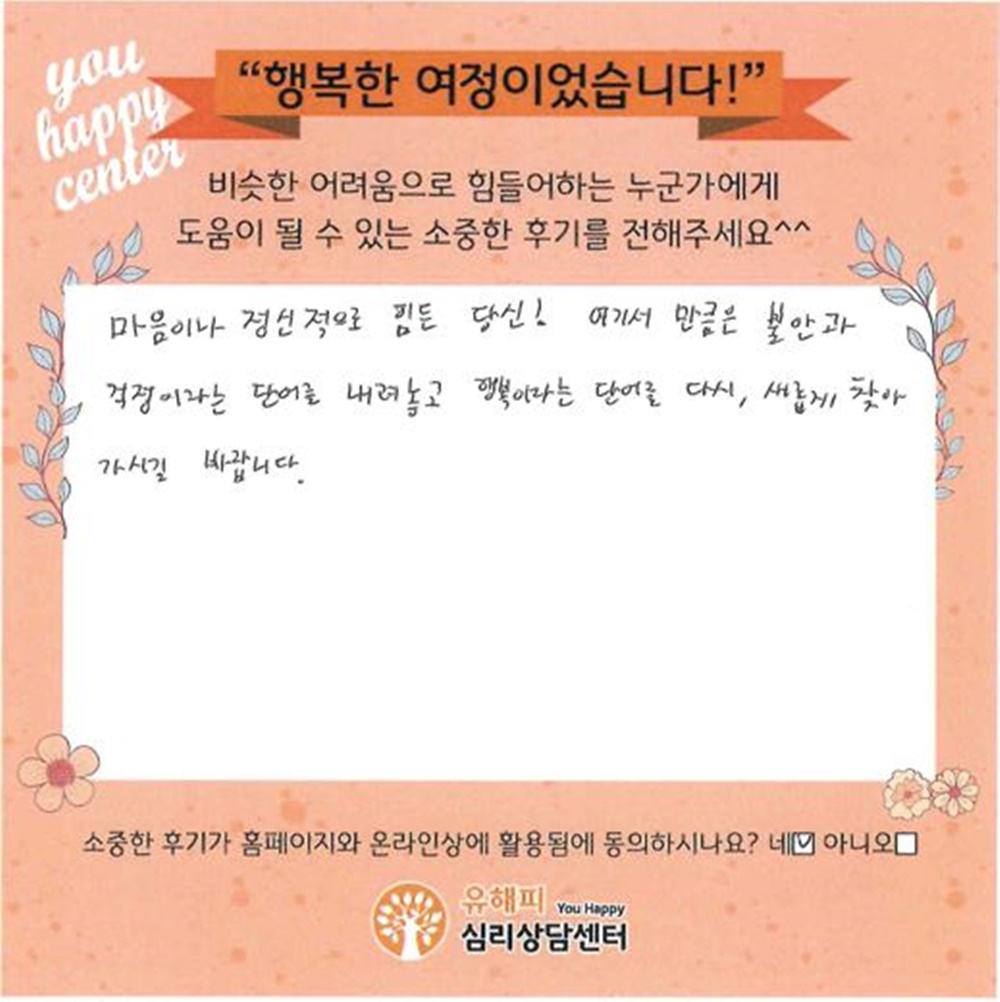 you
happy
center
“행복한 여정이었습니다!”
비슷한 어려움으로 힘들어하는 누군가에게
도움이 될 수 있는 소중한 후기를 전해주세요^^
마음이나 정신적으로 힘든 당신! 여기서 만큼은 불안과
걱정이라는 단어를 내려놓고 행복이라는 단어를 다시, 새롭게 찾아
가시길 바랍니다.
소중한 후기가 홈페이지와 온라인상에 활용됨에 동의하시나요? 네☑ 아니오☐
유해피 You Happy
심리상담센터